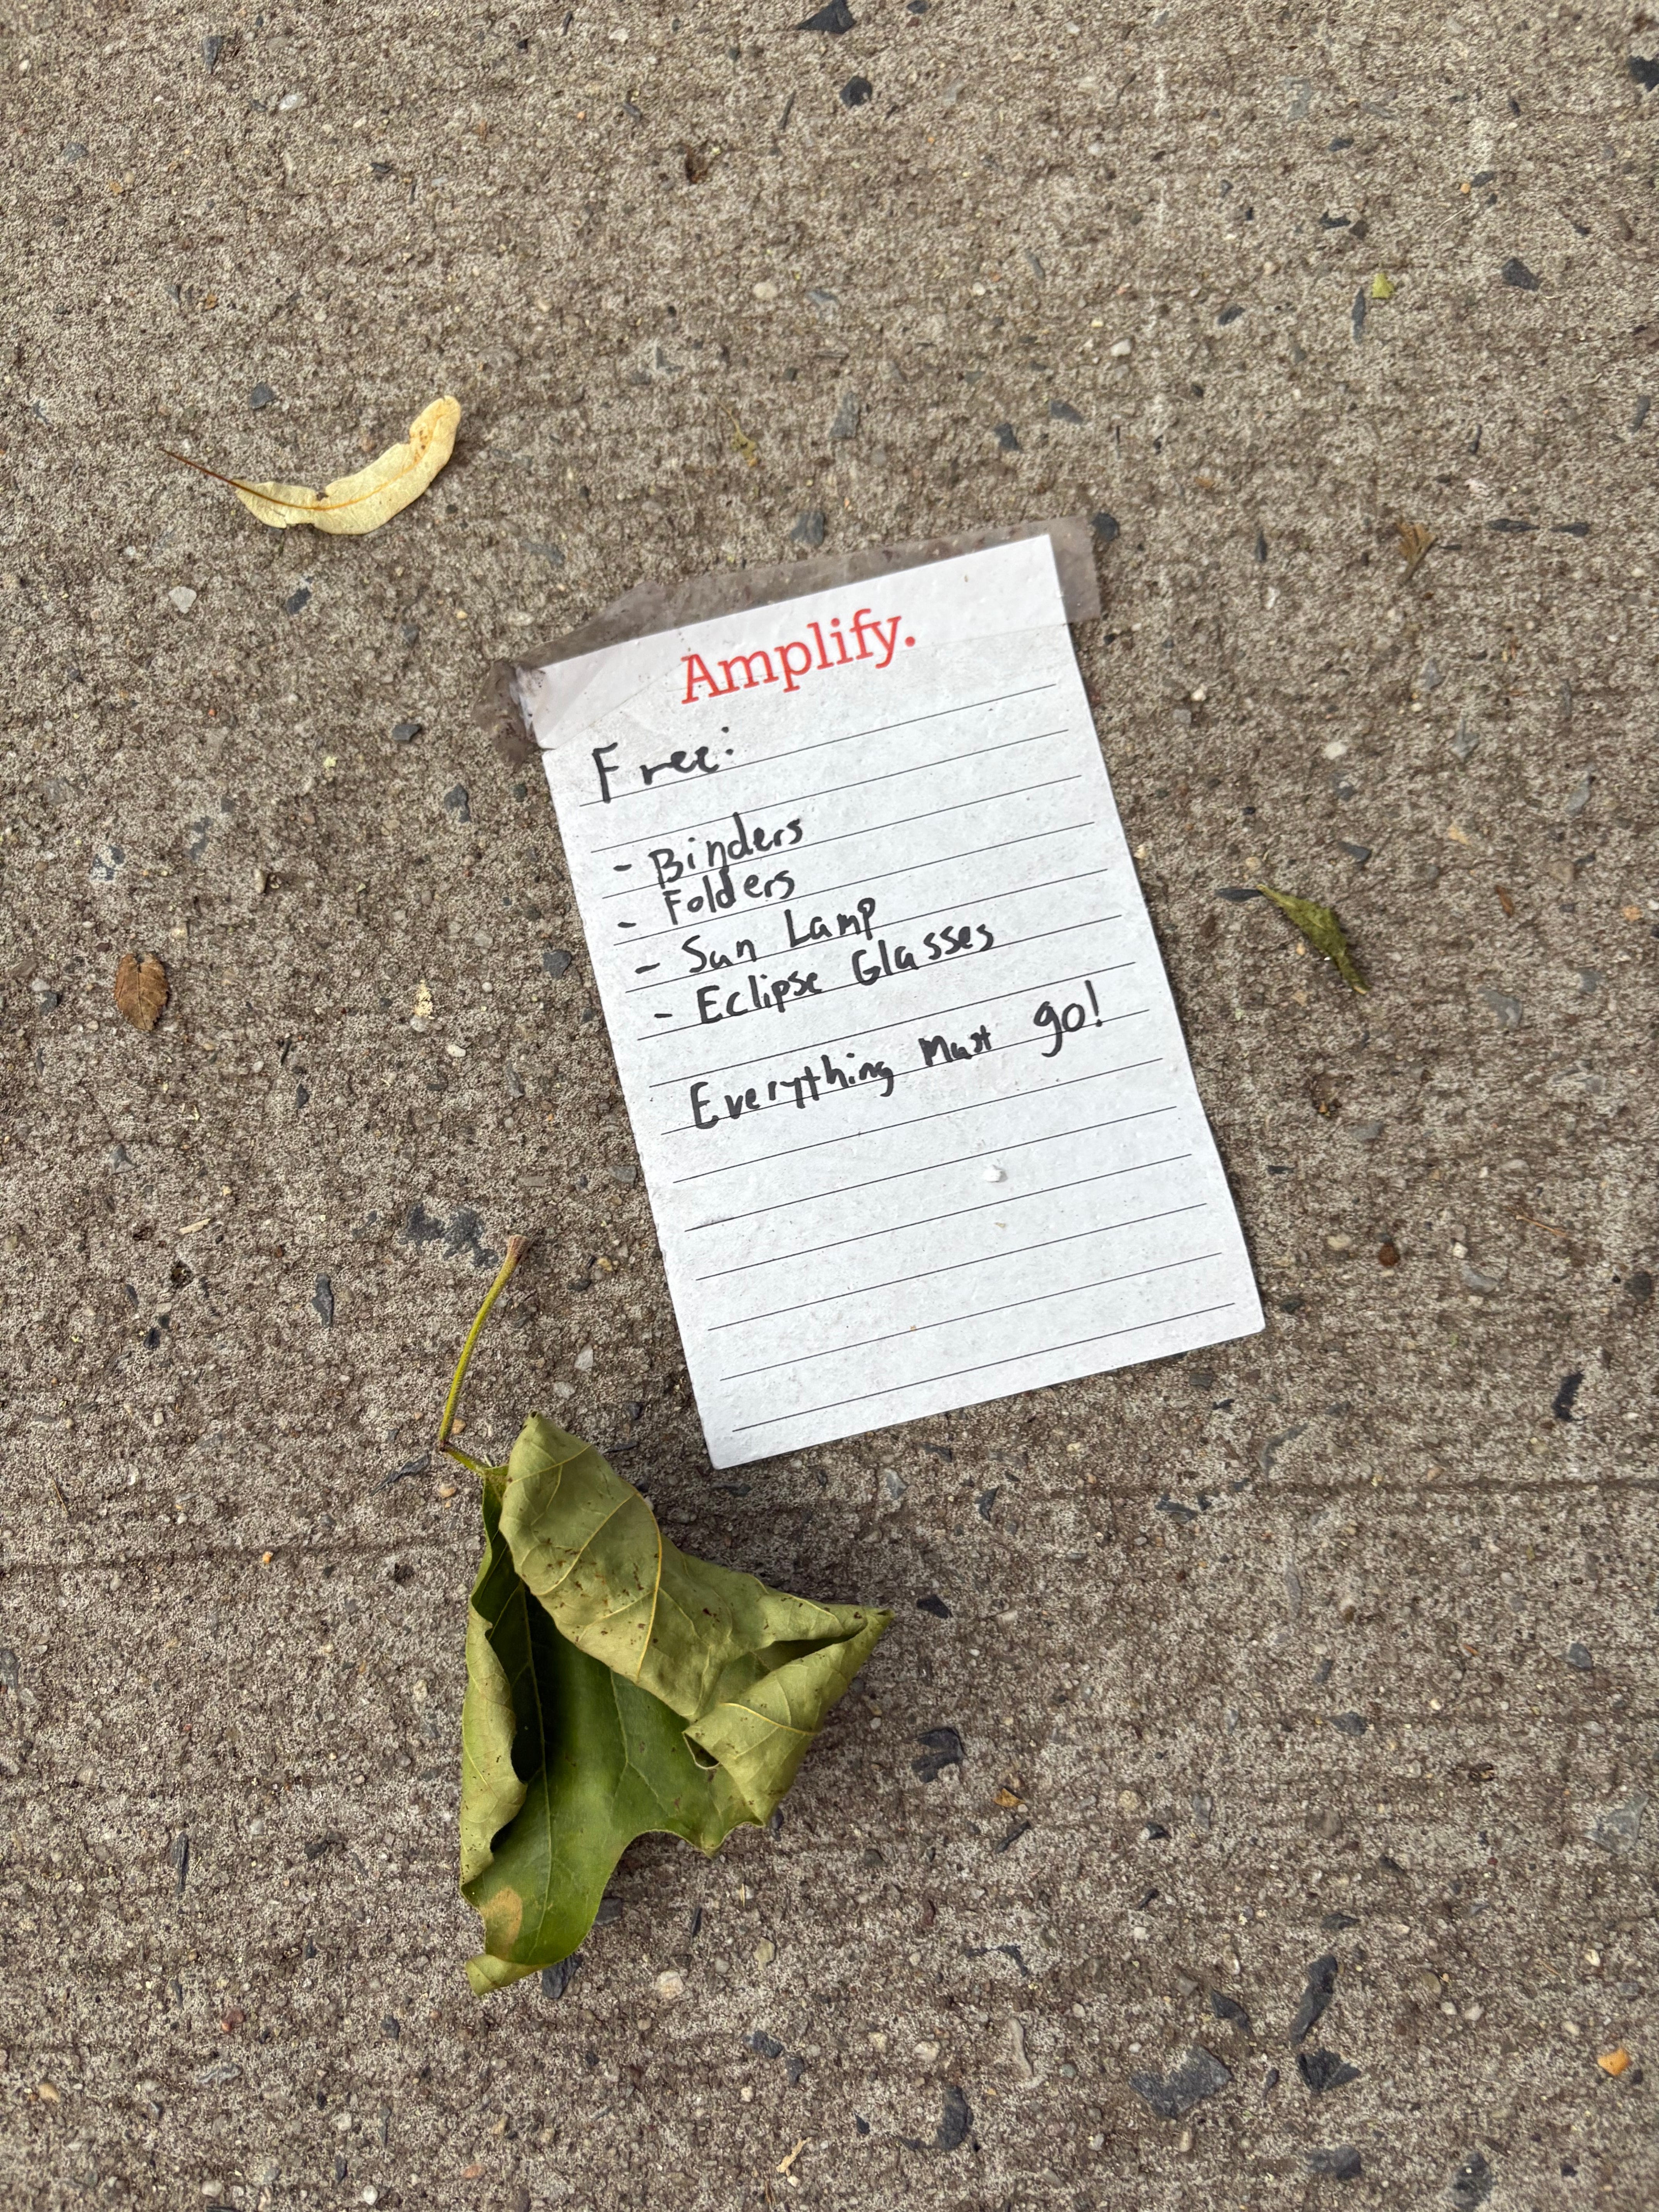 Amplify.
Free:
- Binders
- Folders
- Sun Lamp
- Eclipse Glasses
Everything Must go!